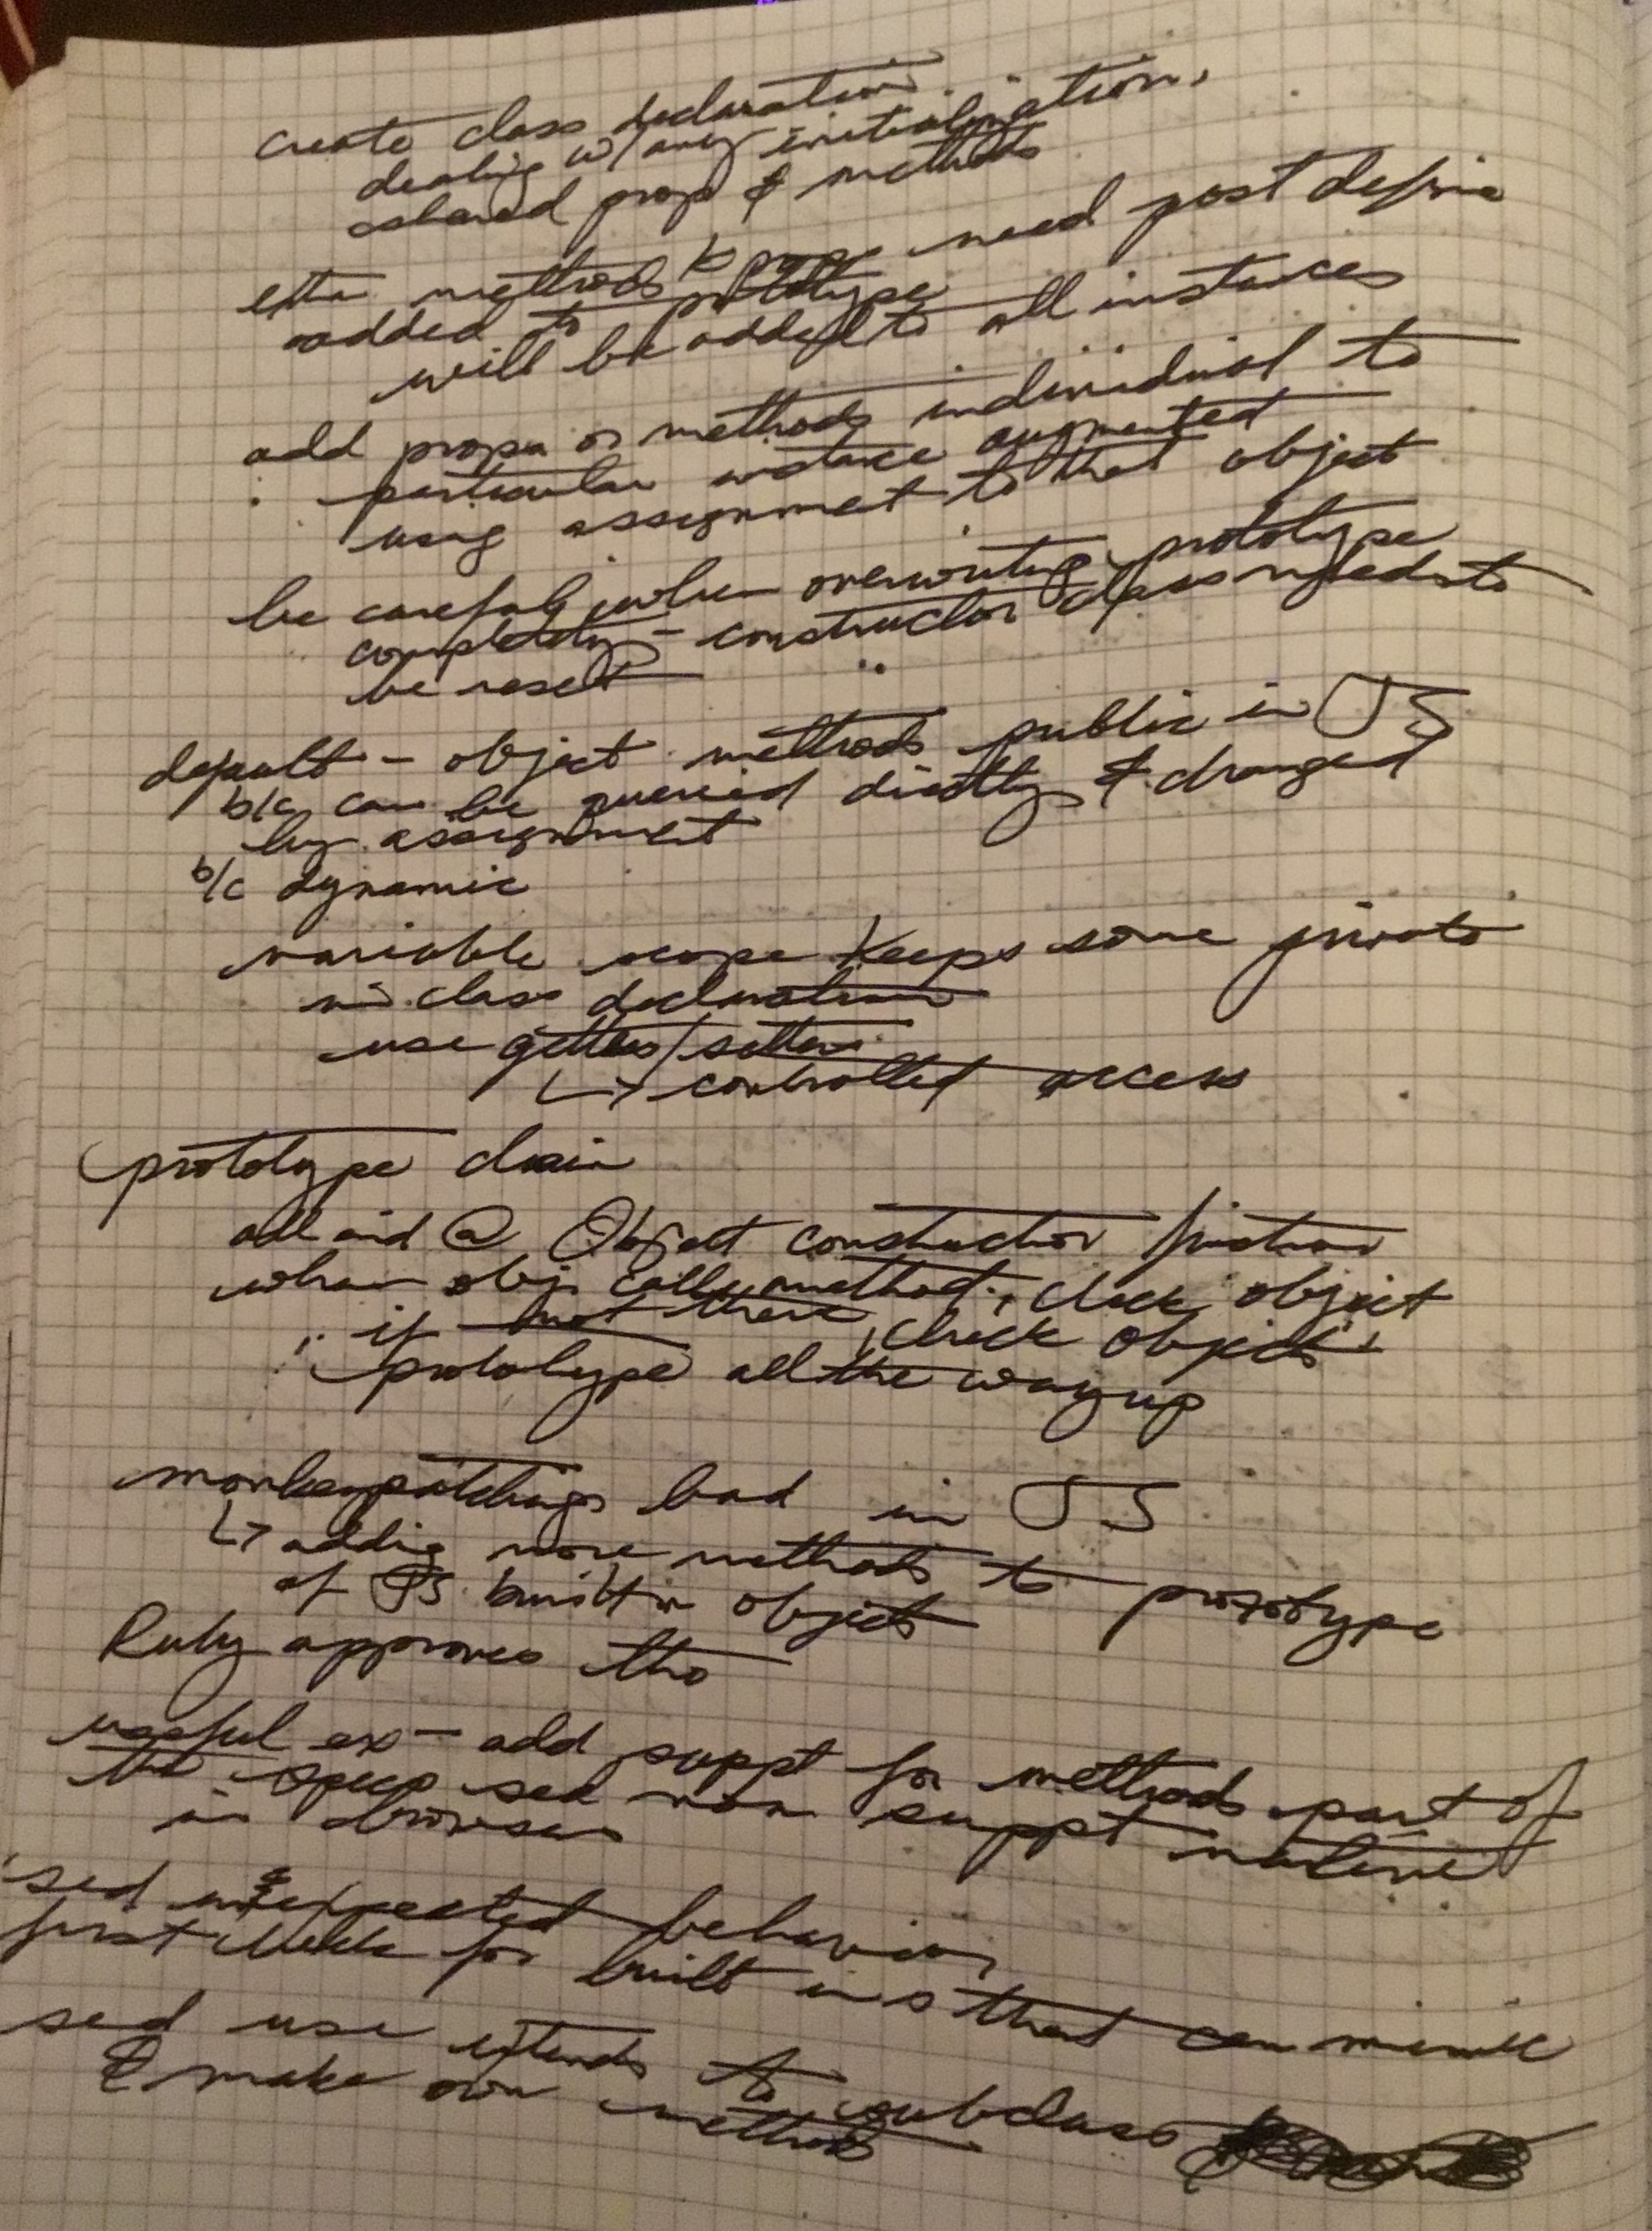 create class declaration
dealing w/ any initialization,
shared prop & methods
methods & props need post define
added to prototype
will be added to all instances
add props or methods individual to
particular instance augmented
using assignment to that object
be careful when overwriting prototype
completely - constructor class needs to
be reset
default - object methods public in JS
b/c can be queried directly & changed
by assignment
b/c dynamic
variable scope keeps some private
in class declaration
use getters/setters
↳ controlled access
prototype chain
all end @ Object constructor function
when obj. calls method, check object
if not there, check object's
prototype all the way up
monkeypatching bad in JS
↳ adding more methods to prototype
of JS built in objects
Ruby approves tho
useful ex - add suppt for methods part of
the specs non suppt native
in browser
unexpected behavior,
first check for built ins that can mimic
use extends to subclass
& make own methods